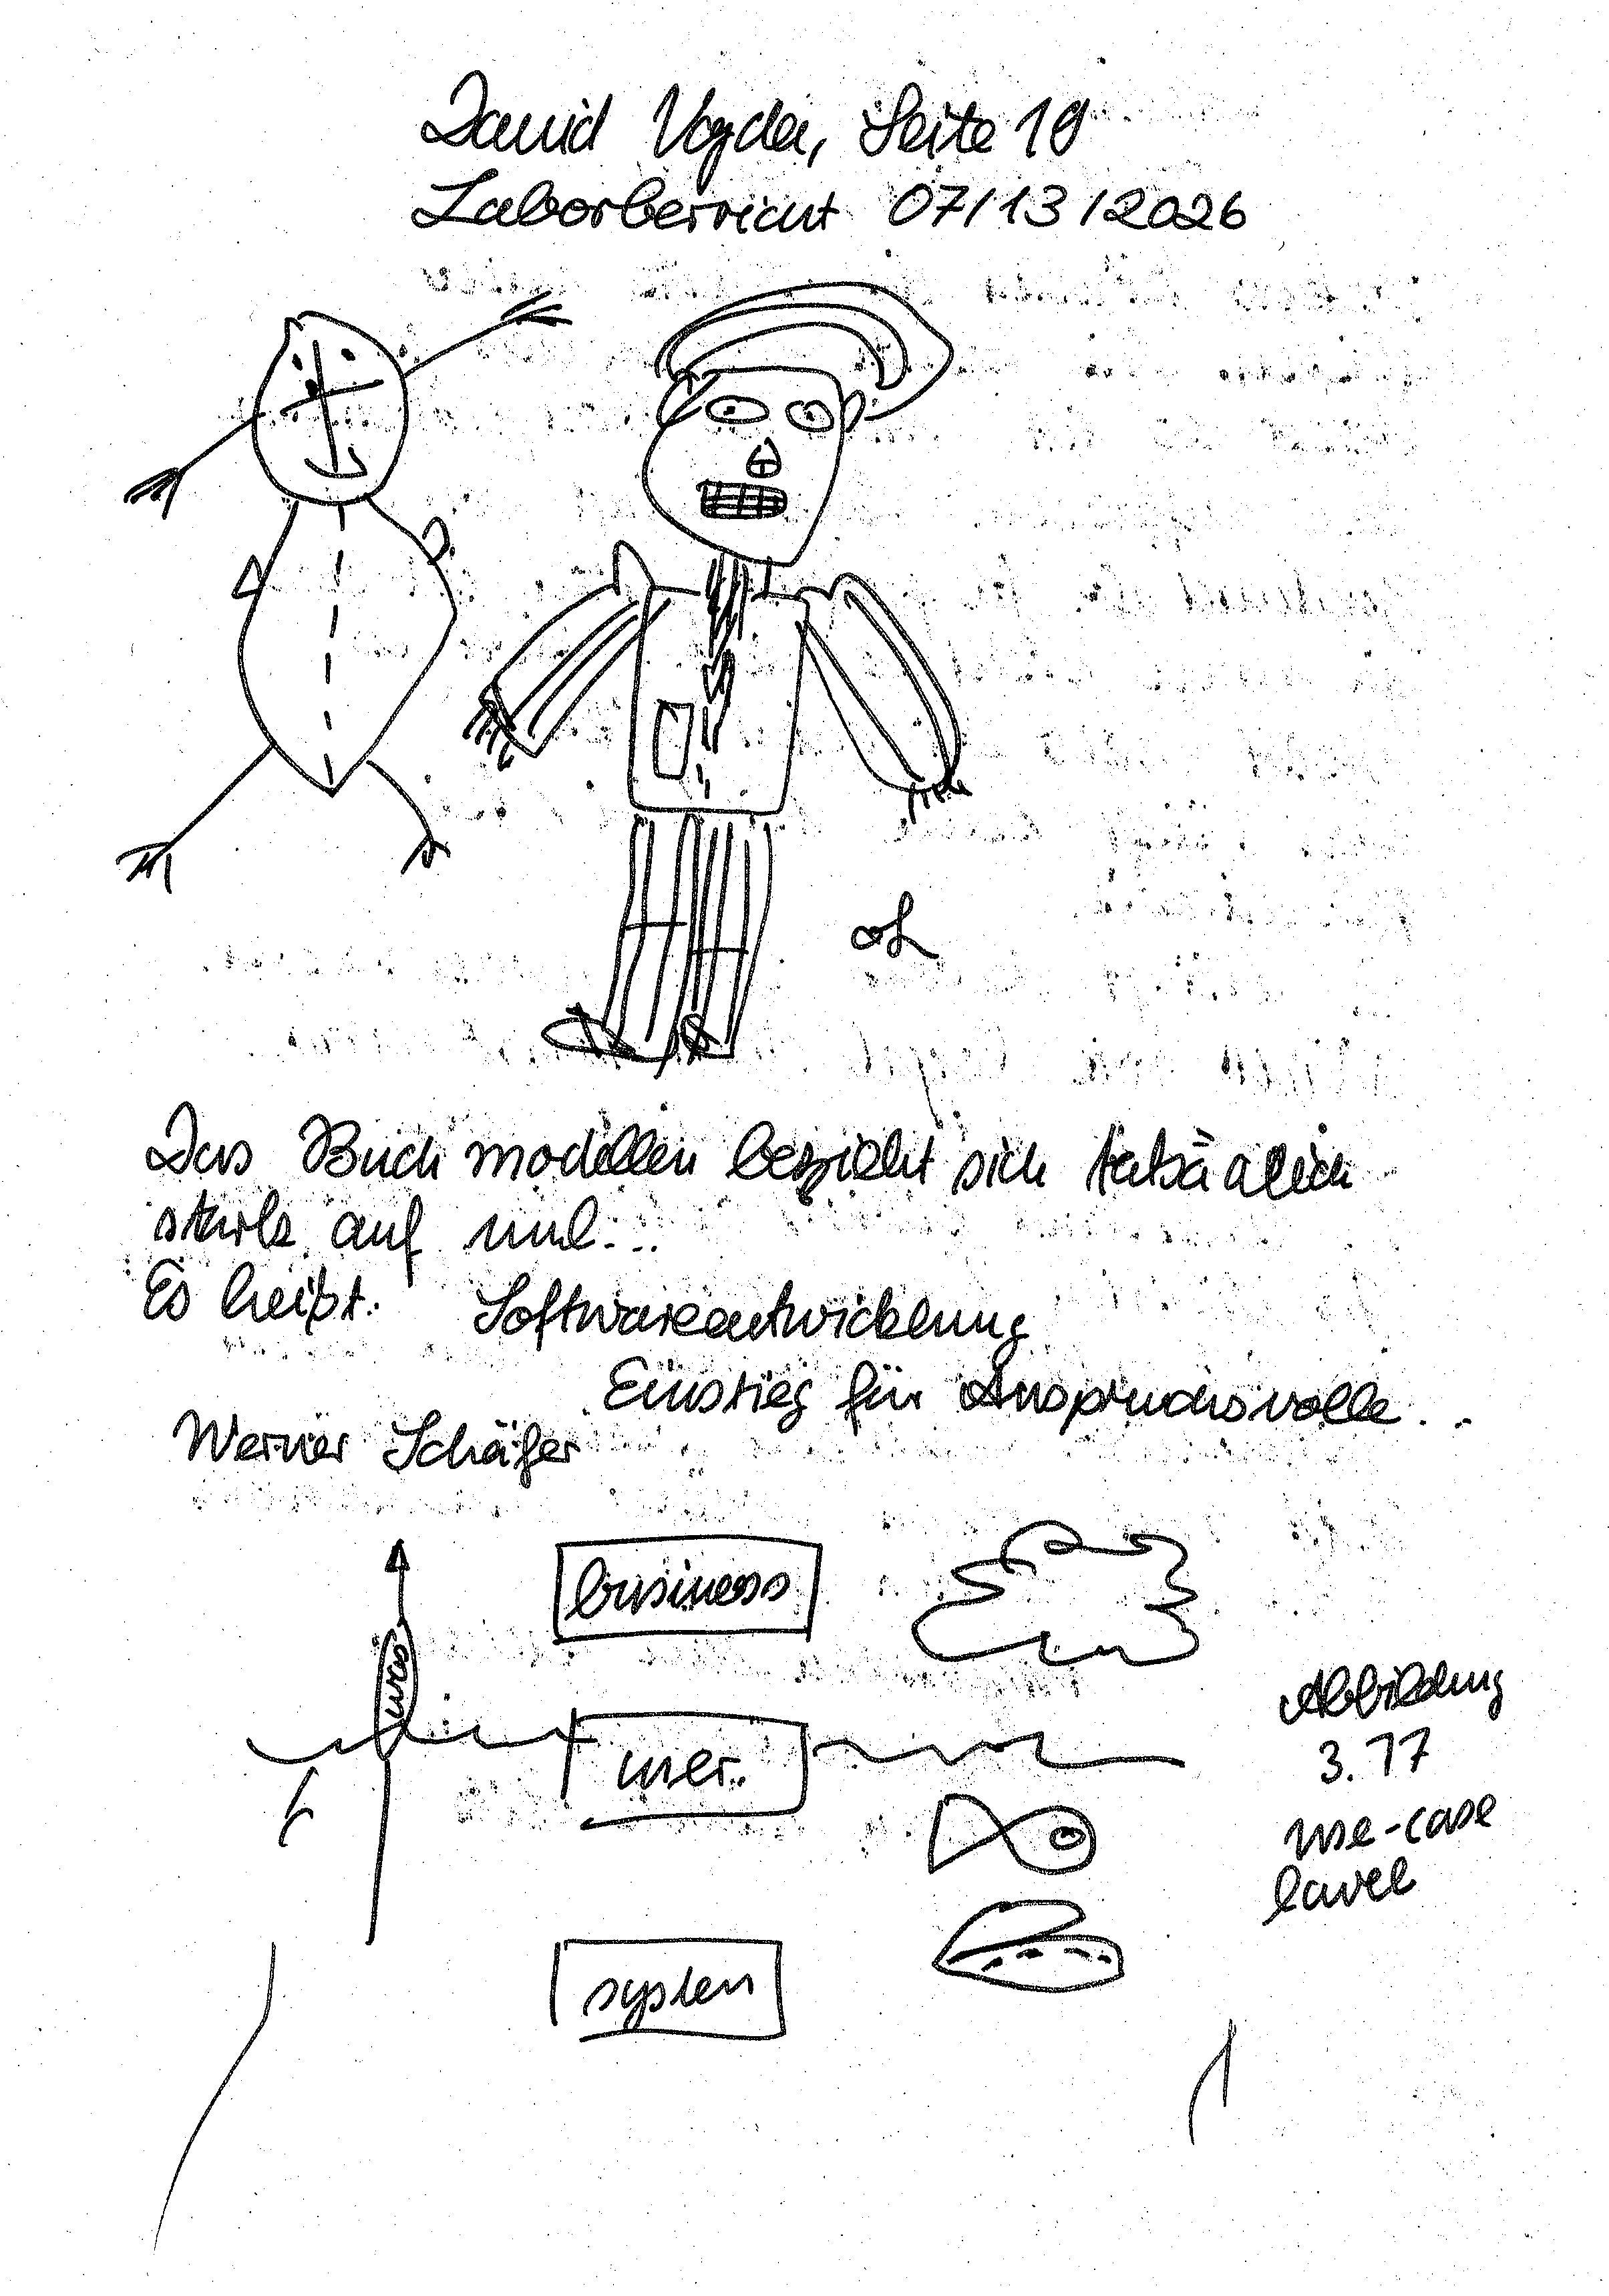 David Vogder, Seite 19
Laborberricht 07/13/2026
Das Buch modellen bezieht sich tatsä alich
stark auf uml...
Es heißt: Softwareentwicklung
Einstieg für Anspruchsvolle...
Werner Schäfer
business
user
system
Abbildung
3.17
use-case
lavel